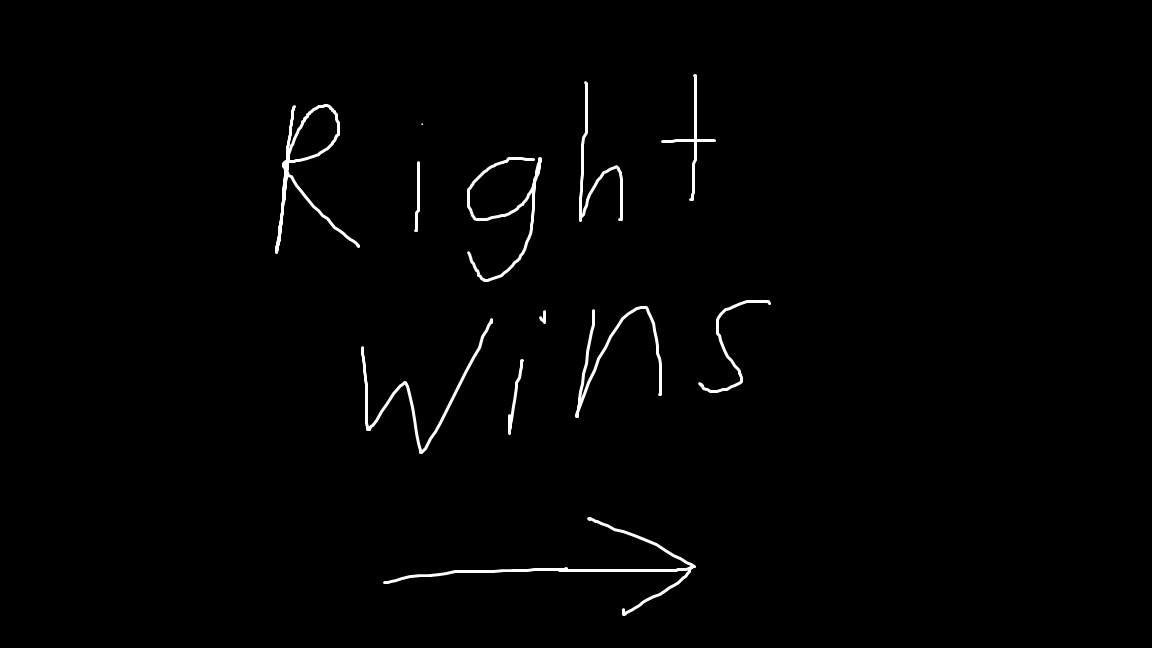 Right
Wins